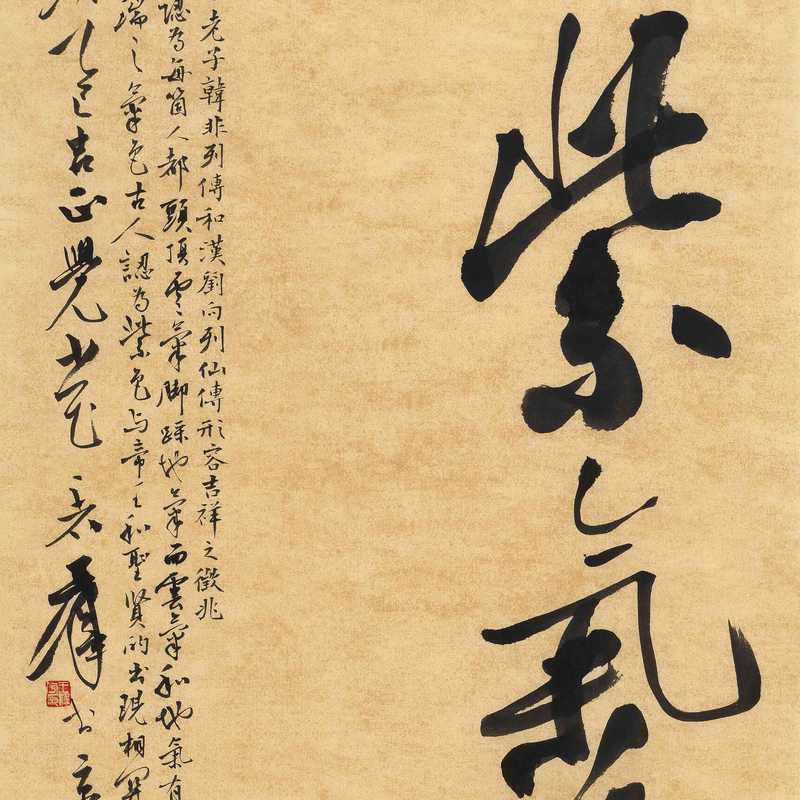 紫氣
老子韓非列傳和漢劉向列仙傳形容吉祥之徵兆
認為每箇人都頭頂雲氣脚踩地氣而雲氣和地氣有
瑞之氣色古人認為紫色与帝王和聖賢的出現相関
乙巳吉正覺